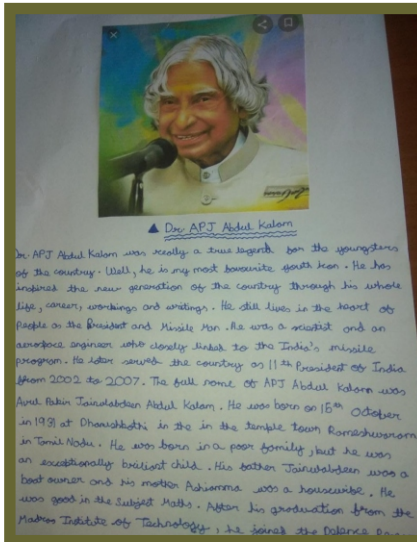 ▲ Dr. APJ Abdul Kalam
Dr. APJ Abdul Kalam was really a true legend for the youngsters
of the country. Well, he is my most favourite youth Icon. He has
inspired the new generation of the country through his whole
life, career, workings and writings. He still lives in the heart of
People as the President and Missile Man. He was a scientist and an
aerospace engineer who closely linked to the India's missile
program. He later served the country as 11th President of India
from 2002 to 2007. The full name of APJ Abdul Kalam was
Avul Pakir Jainulabdeen Abdul Kalam. He was born on 15th October
in 1931 at Dhanushkothi in the in the temple town Rameshwaram
in Tamil Nadu. He was born in a poor family, but he was
an exceptionally brilliant child. His father Jainulabdeen was a
boat owner and his mother Ashiamma was a housewife. He
was good in the Subject Maths. After his graduation from the
Madras Institute of Technology, he joined the Defence